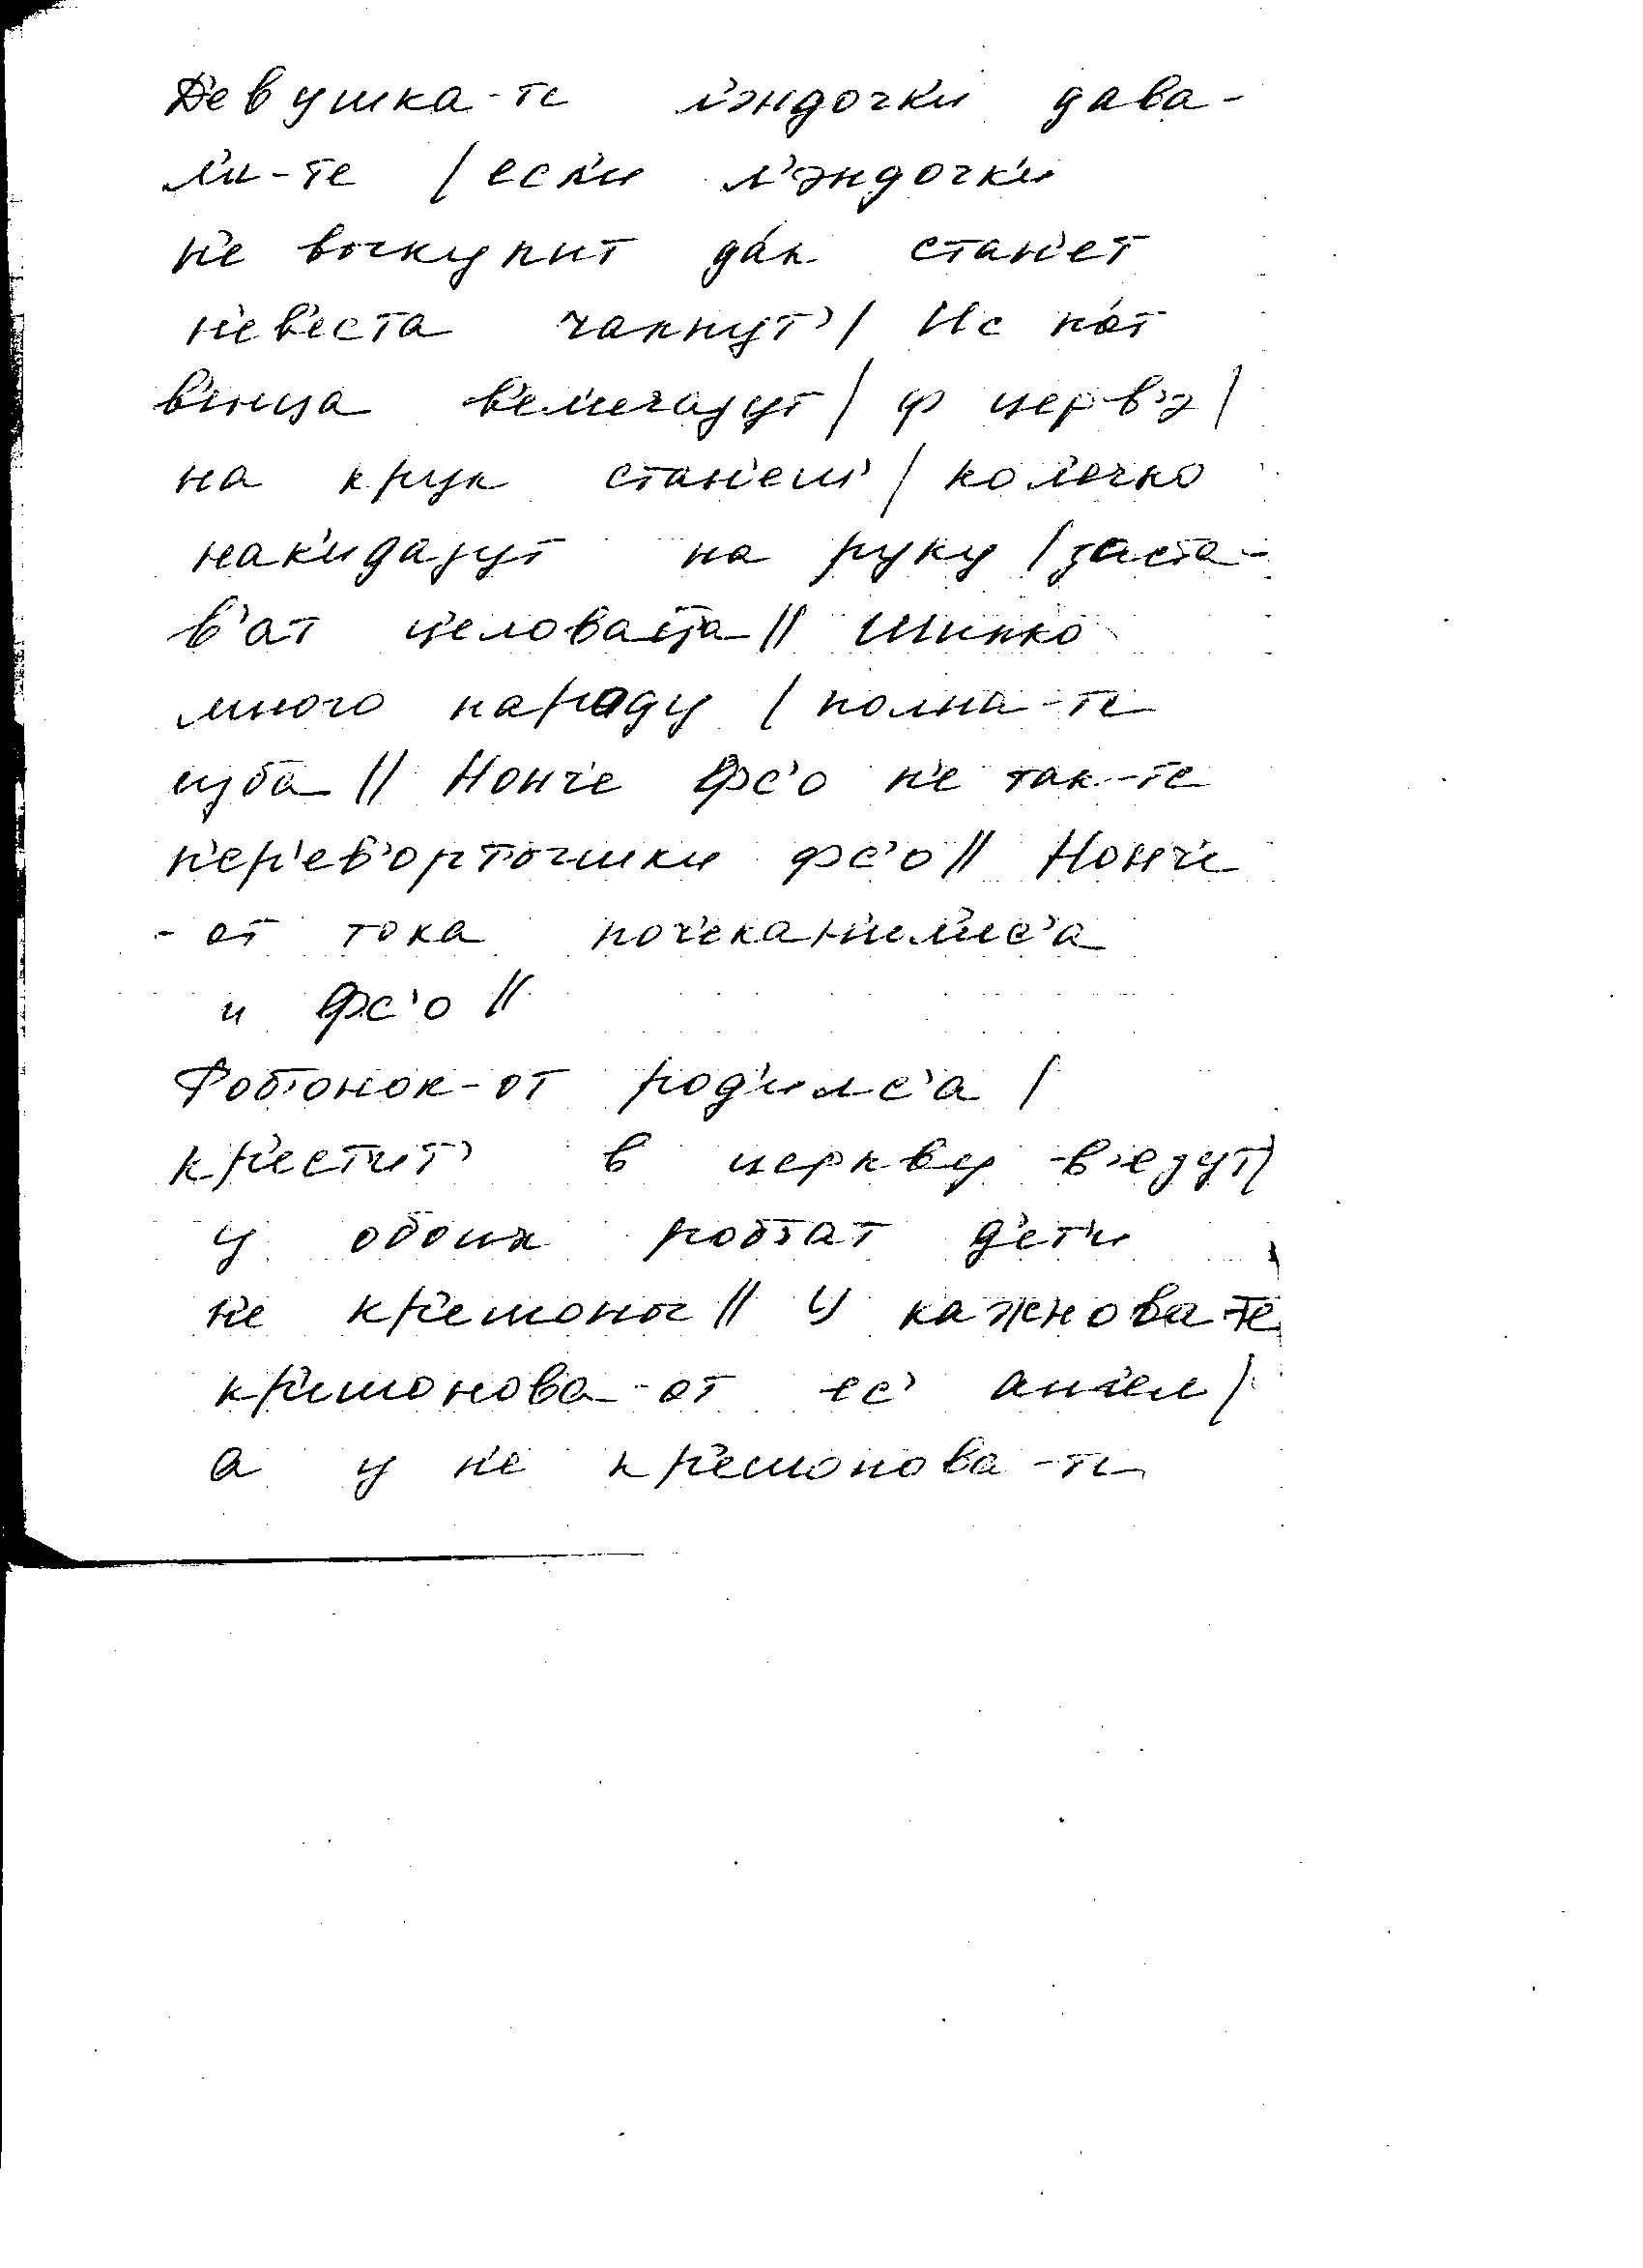 Д'евушка-те л'эндочки дава-
л'и-те / есл'и л'эндочк'и
н'е выкупит да́к стан'ет
н'ев'еста чапнут' / Ис по́т
в'енца в'ел'ичаjут / ф церв'э /
на крук стан'еш' / кол'ечко
нак'идаjут на руку / заста-
в'ат целоваца // Шипко
много народу / полна-те
изба // Нонч'е фс'о н'е так-те
п'ер'ев'орточишки фс'о // Нонч'е
-от тока поч'екан'ил'ис'а
и фс'о //
Роб'онок-от род'илс'а /
кр'ест'ит' в церкву в'езут /
у обоих роб'ат д'ет'и
н'е кр'ешоны // У кажнова-те
кр'ешонова-от ес' анг'ел /
а у н'е кр'ешонова-те